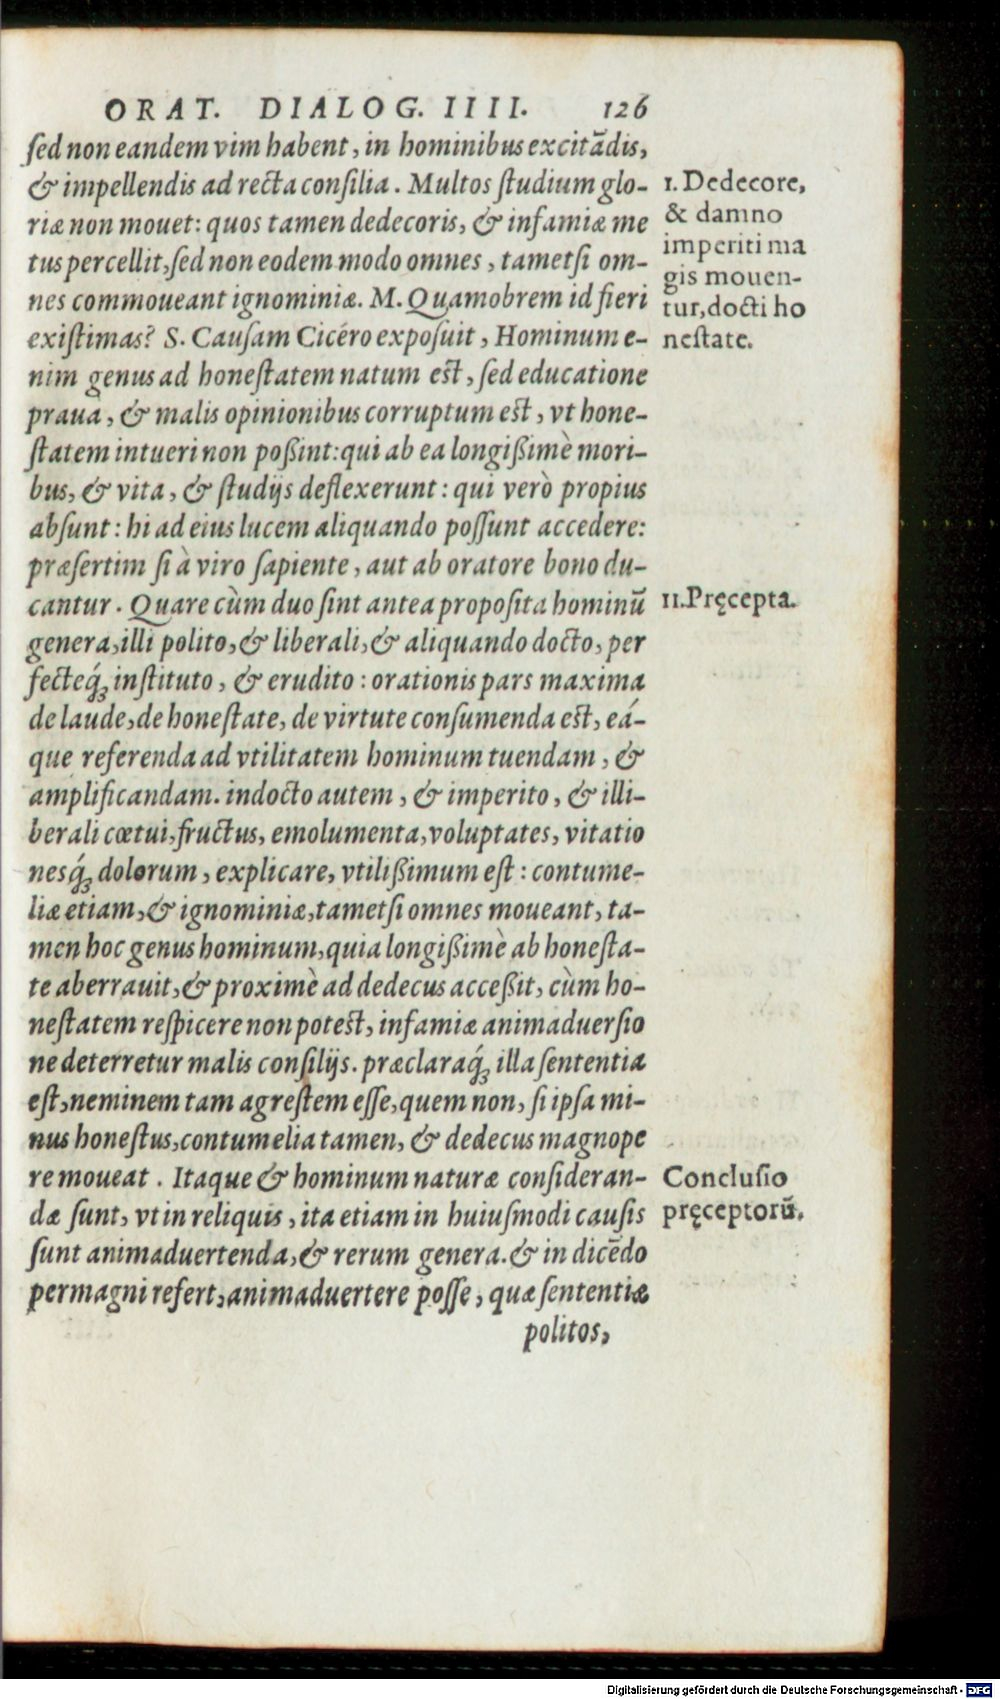 ORAT. DIALOG. IIII. 126
sed non eandem vim habent, in hominibus excitãdis,
& impellendis ad recta consilia. Multos studium glo-
riæ non mouet: quos tamen dedecoris, & infamiæ me
tus percellit, sed non eodem modo omnes, tametsi om-
nes commoueant ignominiæ. M. Quamobrem id fieri
existimas? S. Causam Cicéro exposuit, Hominum e-
nim genus ad honestatem natum est, sed educatione
praua, & malis opinionibus corruptum est, vt hone-
statem intueri non poßint: qui ab ea longißimè mori-
bus, & vita, & studijs deflexerunt: qui verò propius
absunt: hi ad eius lucem aliquando possunt accedere:
præsertim si à viro sapiente, aut ab oratore bono du-
cantur. Quare cùm duo sint antea proposita hominũ
genera, illi polito, & liberali, & aliquando docto, per
fecteq́; instituto, & erudito: orationis pars maxima
de laude, de honestate, de virtute consumenda est, eá-
que referenda ad vtilitatem hominum tuendam, &
amplificandam. indocto autem, & imperito, & illi-
berali cœtui, fructus, emolumenta, voluptates, vitatio
nesq́; dolorum, explicare, vtilißimum est: contume-
liæ etiam, & ignominiæ, tametsi omnes moueant, ta-
men hoc genus hominum, quia longißimè ab honesta-
te aberrauit, & proximè ad dedecus acceßit, cùm ho-
nestatem respicere non potest, infamiæ animaduersio
ne deterretur malis consilijs. præclaraq́; illa sententia
est, neminem tam agrestem esse, quem non, si ipsa mi-
nus honestus, contumelia tamen, & dedecus magnope
re moueat. Itaque & hominum naturæ consideran-
dæ sunt, vt in reliquis, ita etiam in huiusmodi causis
sunt animaduertenda, & rerum genera. & in dicẽdo
permagni refert, animaduertere posse, quæ sententiæ
politos,
1. Dedecore,
& damno
imperiti ma
gis mouen-
tur, docti ho
nestate.
11. Pręcepta.
Conclusio
pręceptorũ.
Digitalisierung gefördert durch die Deutsche Forschungsgemeinschaft - DFG